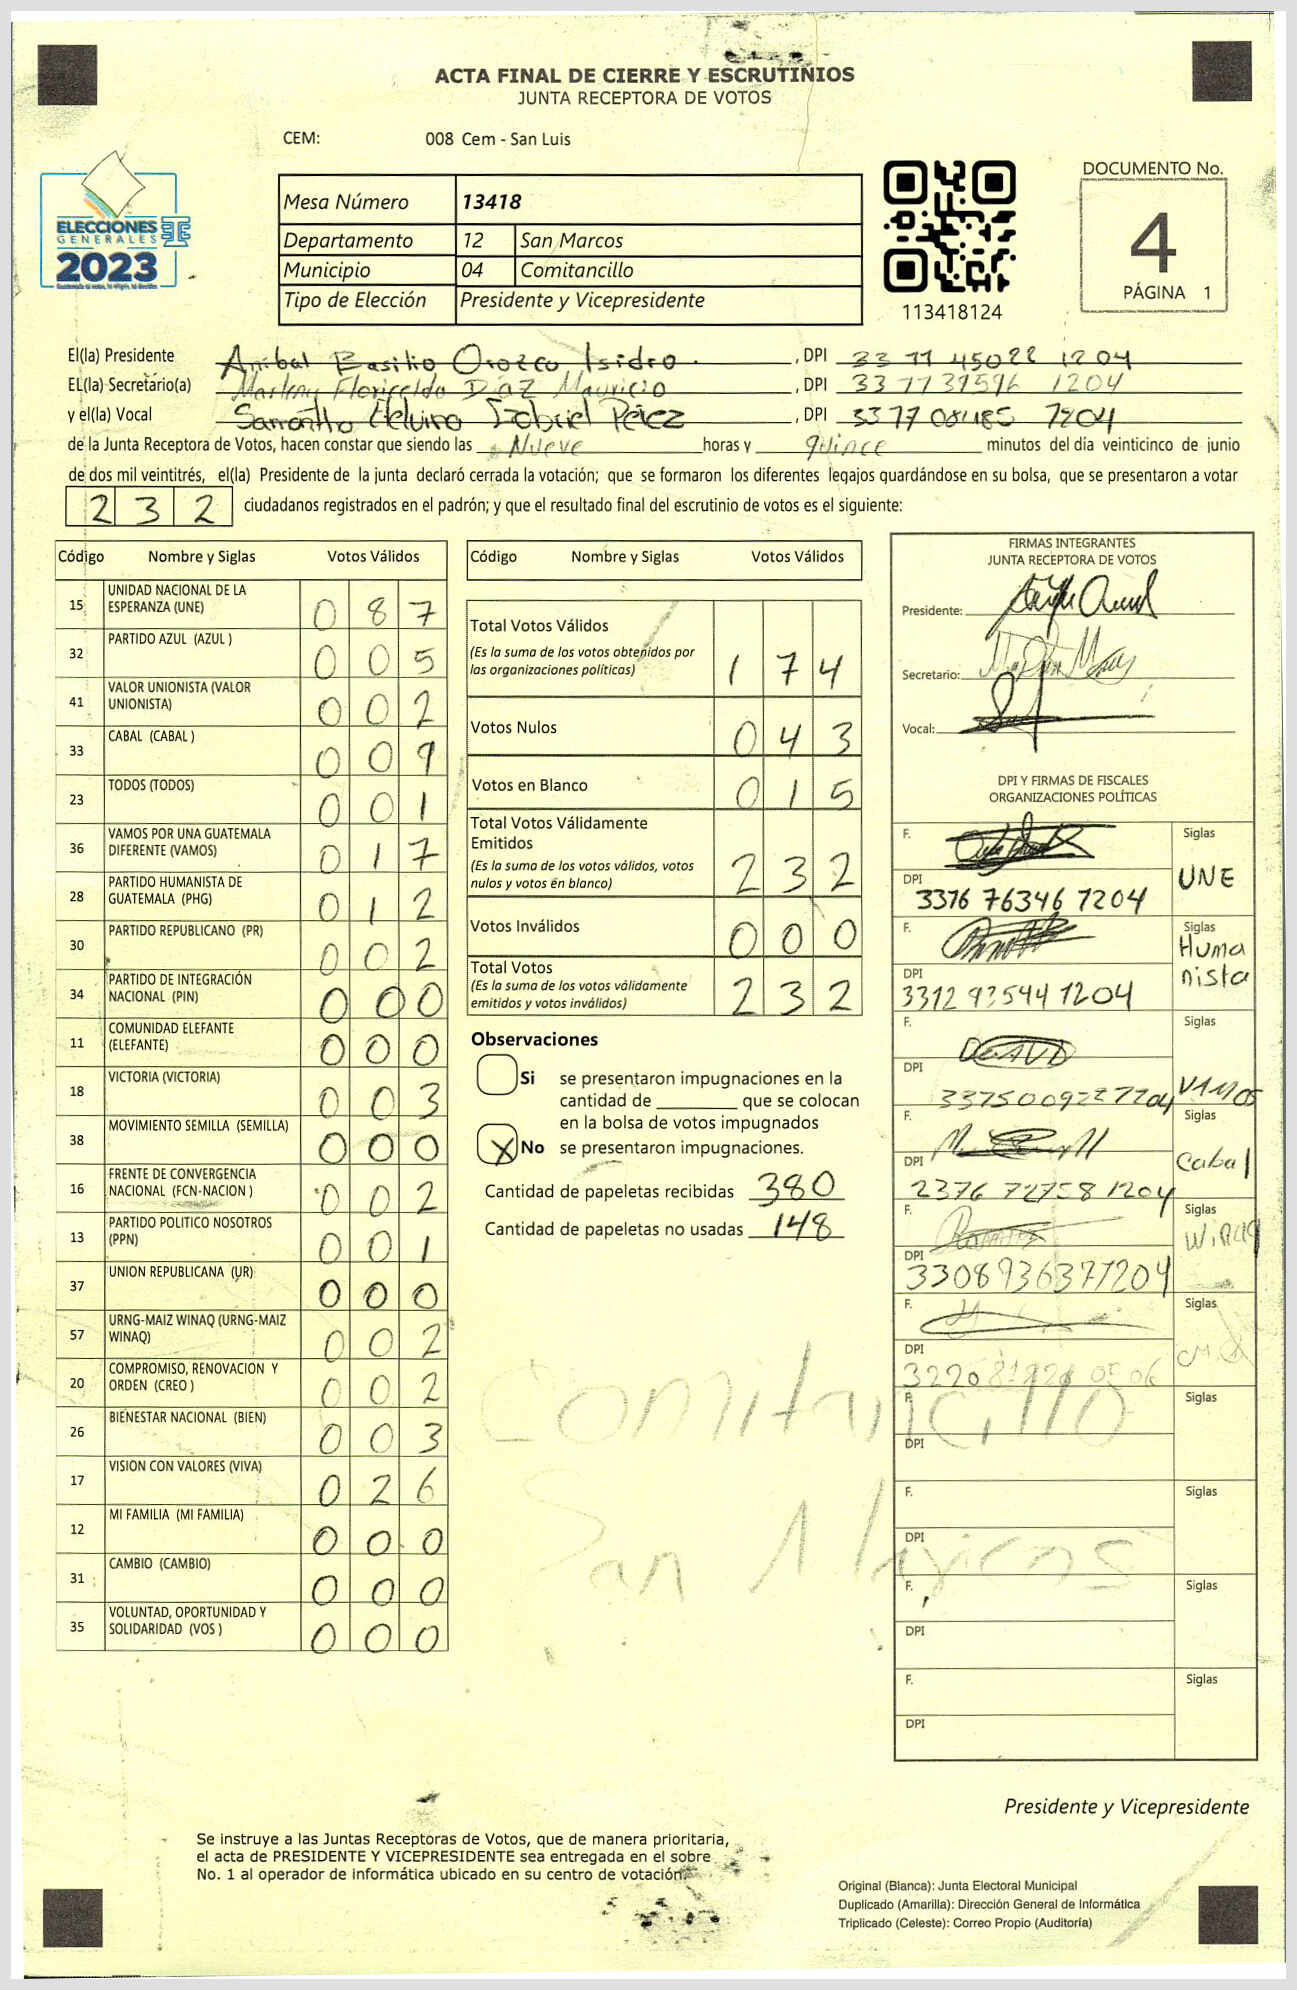 ACTA FINAL DE CIERRE Y ESCRUTINIOS
JUNTA RECEPTORA DE VOTOS
CEM: 008 Cem - San Luis
ELECCIONES
GENERALES
2023
Mesa Número 13418
Departamento 12 San Marcos
Municipio 04 Comitancillo
Tipo de Elección Presidente y Vicepresidente
113418124
DOCUMENTO No.
4
PÁGINA 1
El(la) Presidente Aníbal Basilio Orozco Isidro. , DPI 33 77 45022 1204
EL(la) Secretario(a) Díaz Mauricio , DPI 1204
y el(la) Vocal Gabriel Pérez , DPI 3377 08485 1204
de la Junta Receptora de Votos, hacen constar que siendo las Nueve horas y quince minutos del día veinticinco de junio
de dos mil veintitrés, el(la) Presidente de la junta declaró cerrada la votación; que se formaron los diferentes legajos guardándose en su bolsa, que se presentaron a votar
2 3 2 ciudadanos registrados en el padrón; y que el resultado final del escrutinio de votos es el siguiente:
Código Nombre y Siglas Votos Válidos
15 UNIDAD NACIONAL DE LA ESPERANZA (UNE) 0 8 7
32 PARTIDO AZUL (AZUL ) 0 0 5
41 VALOR UNIONISTA (VALOR UNIONISTA) 0 0 2
33 CABAL (CABAL ) 0 0 9
23 TODOS (TODOS) 0 0 1
36 VAMOS POR UNA GUATEMALA DIFERENTE (VAMOS) 0 1 7
28 PARTIDO HUMANISTA DE GUATEMALA (PHG) 0 1 2
30 PARTIDO REPUBLICANO (PR) 0 0 2
34 PARTIDO DE INTEGRACIÓN NACIONAL (PIN) 0 0 0
11 COMUNIDAD ELEFANTE (ELEFANTE) 0 0 0
18 VICTORIA (VICTORIA) 0 0 3
38 MOVIMIENTO SEMILLA (SEMILLA) 0 0 0
16 FRENTE DE CONVERGENCIA NACIONAL (FCN-NACION ) 0 0 2
13 PARTIDO POLITICO NOSOTROS (PPN) 0 0 1
37 UNION REPUBLICANA (UR) 0 0 0
57 URNG-MAIZ WINAQ (URNG-MAIZ WINAQ) 0 0 2
20 COMPROMISO, RENOVACION Y ORDEN (CREO ) 0 0 2
26 BIENESTAR NACIONAL (BIEN) 0 0 3
17 VISION CON VALORES (VIVA) 0 2 6
12 MI FAMILIA (MI FAMILIA) 0 0 0
31 CAMBIO (CAMBIO) 0 0 0
35 VOLUNTAD, OPORTUNIDAD Y SOLIDARIDAD (VOS ) 0 0 0
Código Nombre y Siglas Votos Válidos
Total Votos Válidos
(Es la suma de los votos obtenidos por
las organizaciones políticas) 1 7 4
Votos Nulos 0 4 3
Votos en Blanco 0 1 5
Total Votos Válidamente
Emitidos
(Es la suma de los votos válidos, votos
nulos y votos en blanco) 2 3 2
Votos Inválidos 0 0 0
Total Votos
(Es la suma de los votos válidamente
emitidos y votos inválidos) 2 3 2
Observaciones
Si se presentaron impugnaciones en la
cantidad de ________ que se colocan
en la bolsa de votos impugnados
X No se presentaron impugnaciones.
Cantidad de papeletas recibidas 380
Cantidad de papeletas no usadas 148
Comitancillo
San Marcos
FIRMAS INTEGRANTES
JUNTA RECEPTORA DE VOTOS
Presidente:
Secretario:
Vocal:
DPI Y FIRMAS DE FISCALES
ORGANIZACIONES POLÍTICAS
F. Siglas
DPI 3376 76346 1204 UNE
F. Siglas
DPI 3312 93544 1204 Humanista
F. Siglas
DPI 337500922 1204 VAMOS
F. Siglas
DPI 2376 72758 1204 Cabal
F. Siglas
DPI 3308936371204
F. Siglas
DPI
F. Siglas
DPI
F. Siglas
DPI
F. Siglas
DPI
F. Siglas
DPI
Presidente y Vicepresidente
Se instruye a las Juntas Receptoras de Votos, que de manera prioritaria,
el acta de PRESIDENTE Y VICEPRESIDENTE sea entregada en el sobre
No. 1 al operador de informática ubicado en su centro de votación.
Original (Blanca): Junta Electoral Municipal
Duplicado (Amarilla): Dirección General de Informática
Triplicado (Celeste): Correo Propio (Auditoría)